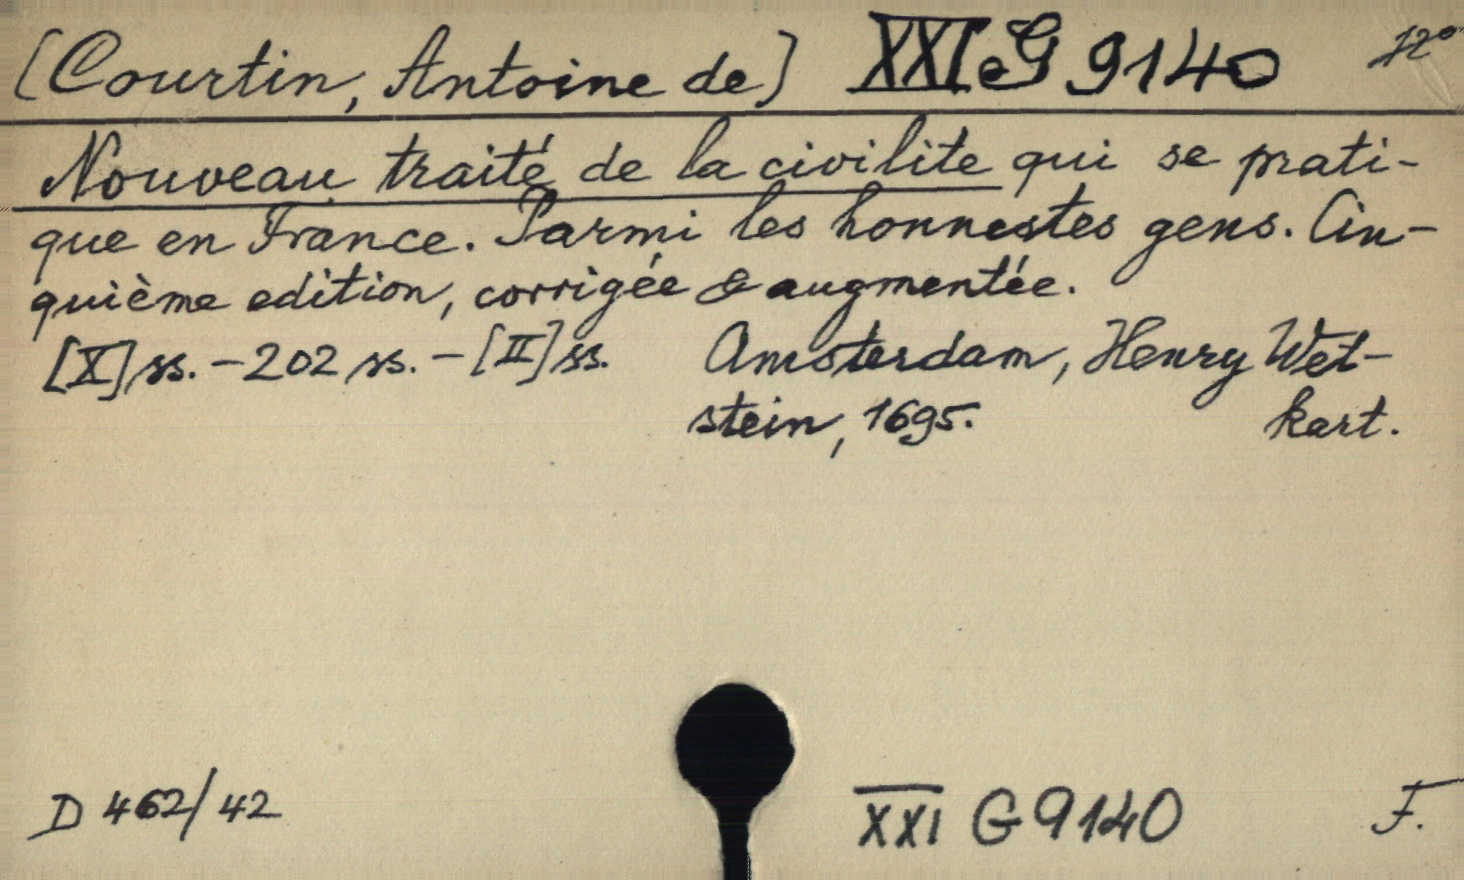 [Courtin, Antoine de] XXI G 9140 12°
Nouveau traité de la civilite qui se prati-
que en France. Parmi les honnestes gens. Cin-
quième edition, corrigée & augmentée.
[X] ss. - 202 ss. - [II] ss. Amsterdam, Henry Wet-
stein, 1695. kart.
D 462/42 XXI G 9140 F.